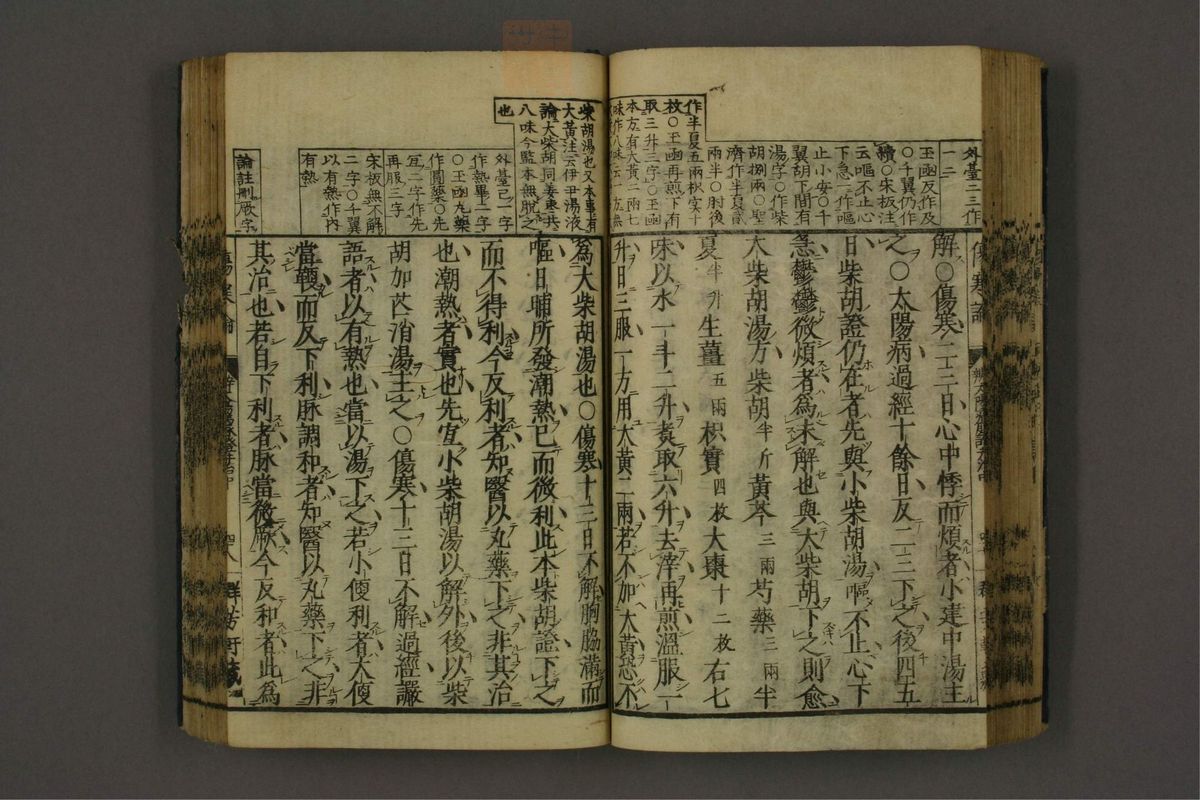 外臺二三作
一二
玉函反作及
○千翼仍作
續○宋板注
云嘔不止心
下急一作嘔
止小安○千
翼胡下間有
湯字○作柴
胡捌兩○聖
濟作半夏貳
兩半○肘後
作半夏五兩枳实十
枚○玉函再煎下有
取三升三字○玉函
本方有大黃二兩七
味作八味云一方無
解○傷寒二三日心中悸而煩者小建中湯主
之○太陽病過經十餘日反二三下之後四五
日柴胡證仍在者先與小柴胡湯嘔不止心下
急鬱鬱微煩者為未解也與大柴胡下之則愈
大柴胡湯方柴胡半斤黃芩三兩芍藥三兩半
夏半升生薑五兩枳實四枚大棗十二枚右七
味以水一斗二升煑取六升去滓再煎溫服一
升日三服一方用大黃二兩若不加大黃恐不
柴胡湯也又本事有
大黃注云伊尹湯液
論大柴胡同姜棗共
八味今監本無脫之
也
外臺已一字
作熱畢二字
○玉函丸藥
作圓藥○先
宜二字作先
再服三字
宋板無不解
二字○千翼
以有熱作內
有熱
論註刪厥字
為大柴胡湯也○傷寒十三日不解胸脇滿而
嘔日晡所發潮熱已而微利此本柴胡證下之
而不得利今反利者知醫以丸藥下之非其治
也潮熱者實也先宜小柴胡湯以解外後以柴
胡加芒消湯主之○傷寒十三日不解過經讝
語者以有熱也當以湯下之若小便利者大便
當鞕而反下利脉調和者知醫以丸藥下之非
其治也若自下利者脉當微厥今反和者此為
傷寒論